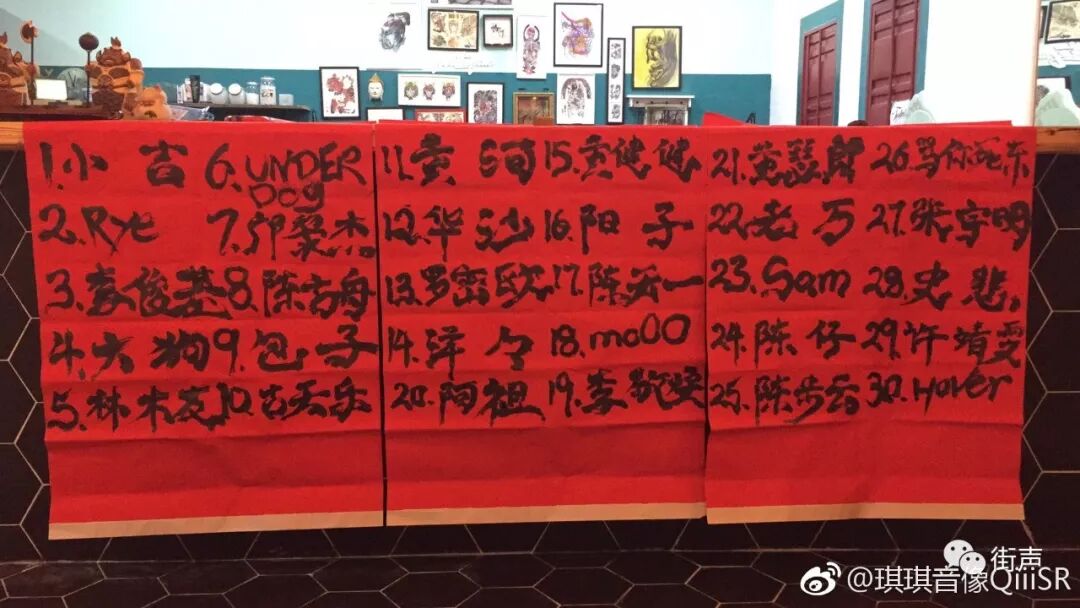 1.小吉
2.Rye
3.俊基
4.大狗
5.林木
6.UNDER
DOG
7.邹 杰
8.陈方舟
9.包子
10.古天乐
11.黄
12.华沙
13.罗密欧
14.洋々
20.阿祖
15.黄健健
16.阳子
17.陈天一
18.moOO
19.李
21.黄瑟
22.老万
23.Sam
24.陈仔
25.陈步云
26.骂你
27.张宇明
28.史悲
29.许靖雯
30.Hover
街声
@琪琪音像QiiiSR